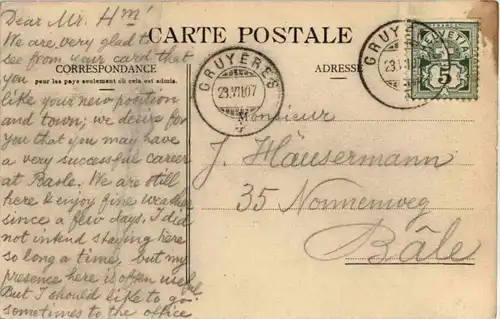 Dear Mr. Hm'
We are very glad to
see from your card that
you
like your new position
and town; we desire for
you that you may have
a very successful career
at Basle. We are still
here & enjoy fine weather
since a few days. I did
not intend staying here
so long a time, but my
presence here is often useful.
But I should like to go
sometimes to the office
CARTE POSTALE
CORRESPONDANCE
pour les pays seulement où cela est admis.
ADRESSE
GRUYÈRES
23.VII.07
GRUYÈRES
23.VII
HELVETIA
5
Monsieur
J. Häusermann
35 Nonnenweg
Bâle